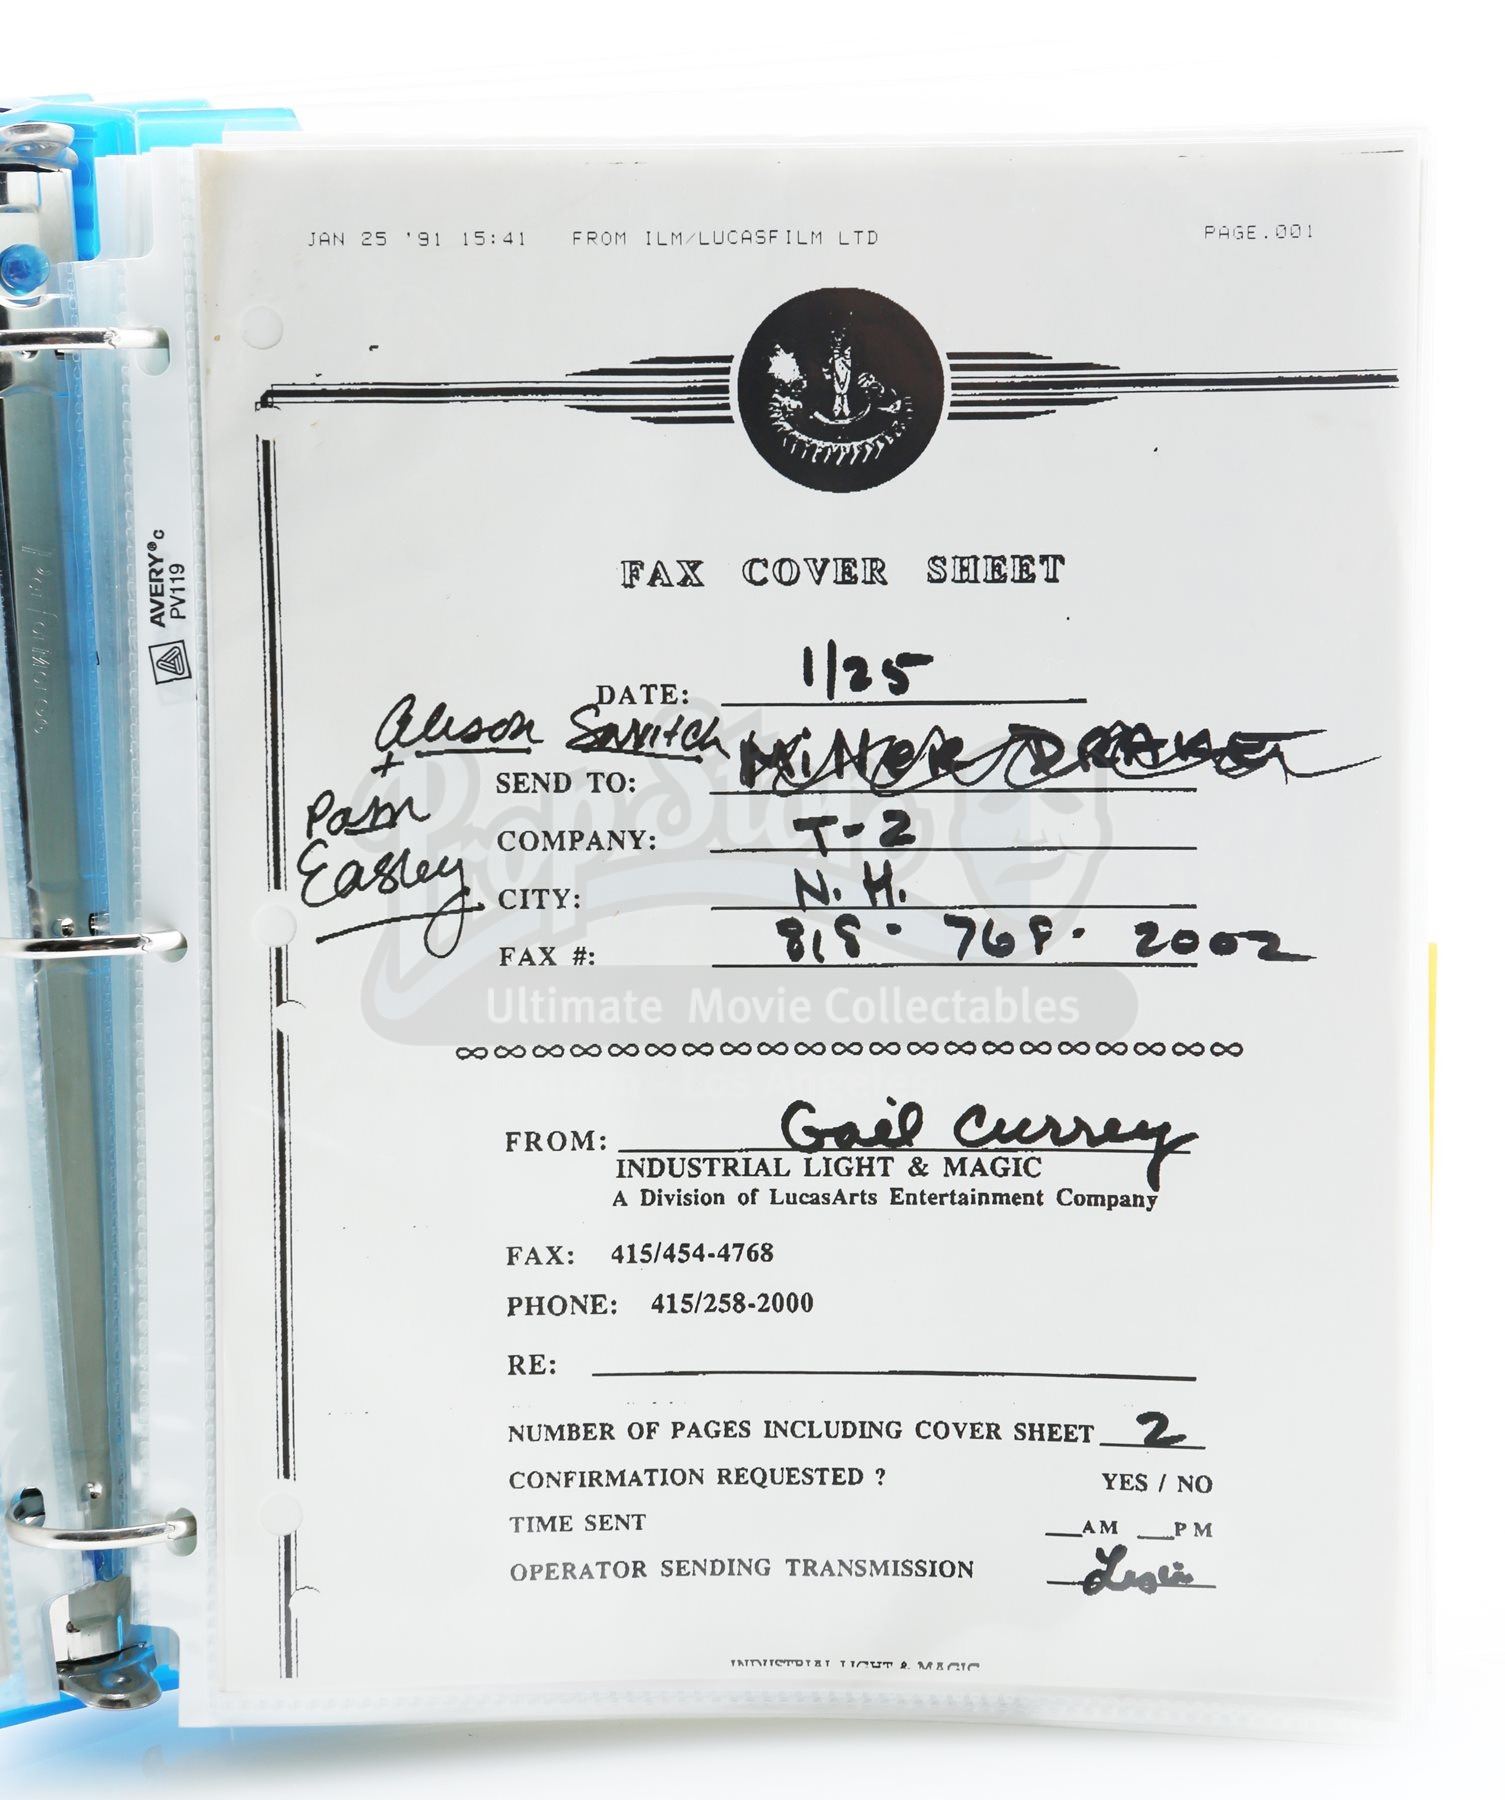 JAN 25 '91 15:41 FROM ILM/LUCASFILM LTD PAGE.001
FAX COVER SHEET
DATE: 1/25
Alison Savitch
+
Pam
Easley
SEND TO: MINOR DRAKE
COMPANY: T-2
CITY: N.H.
FAX #: 818 · 768 · 2002
PropStore
Ultimate Movie Collectables
London - Los Angeles
FROM: Gail Currey
INDUSTRIAL LIGHT & MAGIC
A Division of LucasArts Entertainment Company
FAX: 415/454-4768
PHONE: 415/258-2000
RE:
NUMBER OF PAGES INCLUDING COVER SHEET 2
CONFIRMATION REQUESTED ? YES / NO
TIME SENT __AM __PM
OPERATOR SENDING TRANSMISSION Leslie
INDUSTRIAL LIGHT & MAGIC
AVERY® c
PV119